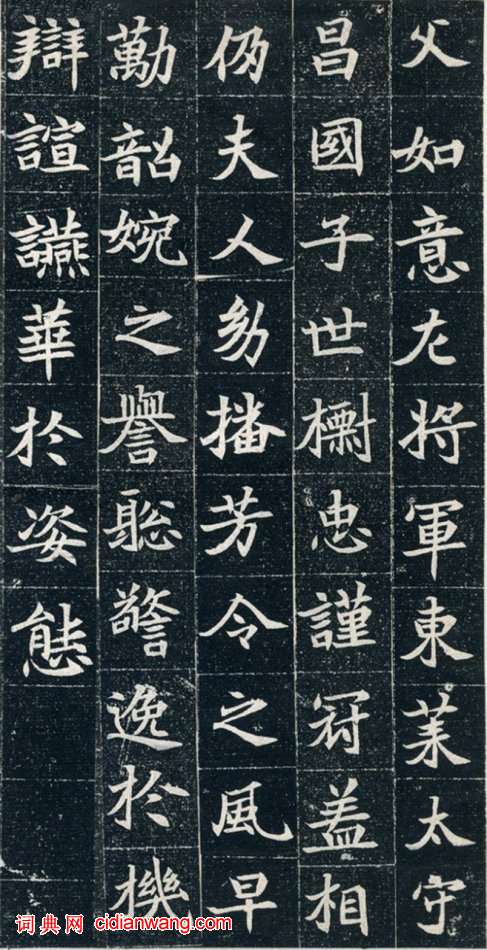 父如意左将軍東莱太守
昌國子世樹忠謹冠盖相
仍夫人幼播芳令之風早
勤韶婉之譽聡警逸於機
辯諠讌華於姿態
词典网 cidianwang.com